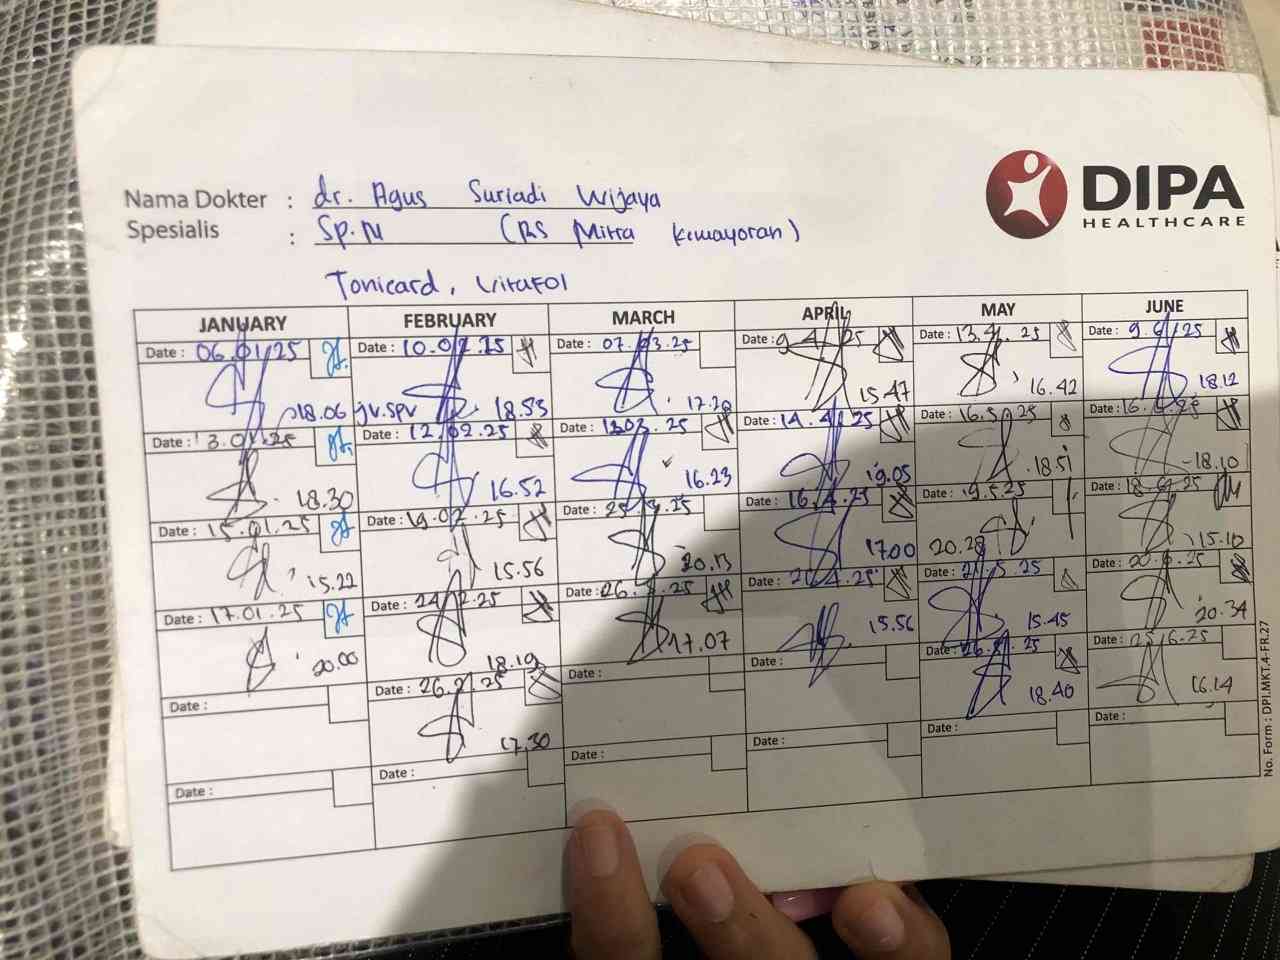 DIPA
HEALTHCARE
Nama Dokter : dr. Agus Suriadi Wijaya
Spesialis : Sp.N (RS Mitra Kemayoran)
Tonicard, Vitafol
JANUARY FEBRUARY MARCH APRIL MAY JUNE
Date : 06.01.25 Date : 10.02.25 Date : 07.03.25 Date : 9.4.25 Date : 13.4.25 Date : 9.6.25
18.06 jv.spv 18.53 17.20 15.47 16.42 18.12
Date : 13.01.25 Date : 12.02.25 Date : 12.03.25 Date : 14.4.25 Date : 16.5.25 Date : 16.6.25
18.30 16.52 16.23 19.05 18.51 18.10
Date : 15.01.25 Date : 19.02.25 Date : Date : 16.4.25 Date : 19.5.25 Date : 18.6.25
15.22 15.56 20.13 17.00 20.28 15.10
Date : 17.01.25 Date : 24.2.25 Date : 26.3.25 Date : Date : 21.5.25 Date : 20.6.25
20.00 18.19 17.07 15.56 15.45 20.34
Date : Date : 26.2.25 Date : Date : Date : 26.5.25 Date : 25.6.25
17.30 18.40 16.14
Date : Date : Date : Date : Date : Date :
No. Form : DPI.MKT.4-FR.27